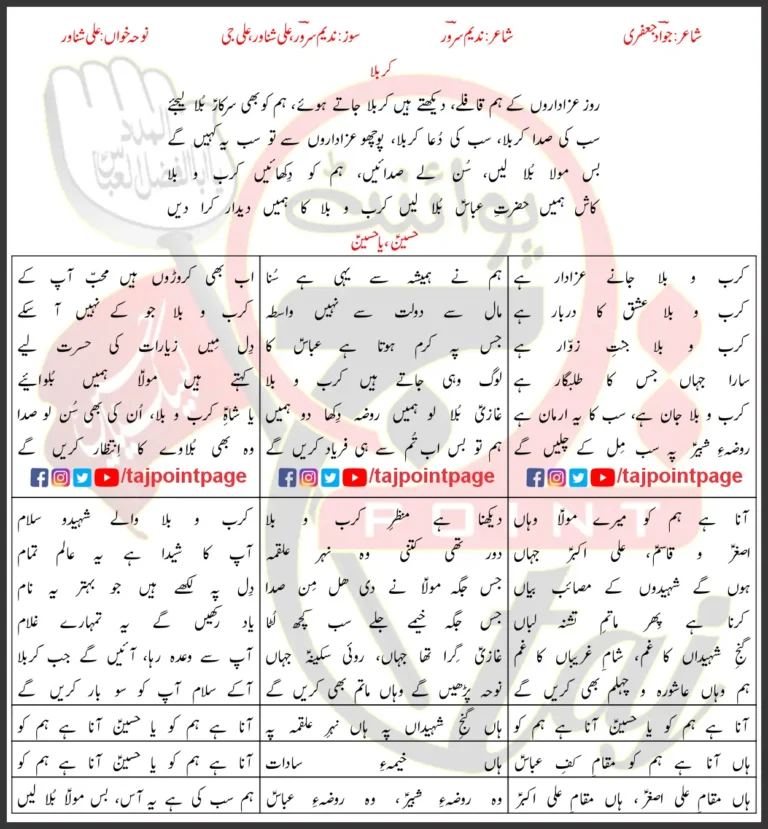 شاعر: جواد جعفری
شاعر: ندیم سرور
سوز: ندیم سرور، علی شناور، علی جی
نوحہ خواں: علی شناور
کربلا
روز عزاداروں کے ہم قافلے، دیکھتے ہیں کربلا جاتے ہوئے، ہم کو بھی سرکار بُلا لیجئے
سب کی صدا کربلا، سب کی دُعا کربلا، پوچھو عزاداروں سے تو سب یہ کہیں گے
بس مولا بُلا لیں، سُن لے صدائیں، ہم کو دِکھائیں کرب و بلا
کاش ہمیں حضرتِ عباسؑ بُلا لیں کرب و بلا کا ہمیں دیدار کرا دیں
حسینؑ، یا حسینؑ
کرب و بلا جانے عزادار ہے
کرب و بلا عشق کا دربار ہے
کرب و بلا جنتِ زوّار ہے
سارا جہاں جس کا طلبگار ہے
کرب و بلا جان ہے، سب کا یہ ارمان ہے
روضہءِ شبیرؑ پہ سب مِل کے چلیں گے
/tajpointpage
ہم نے ہمیشہ سے یہی ہے سُنا
مال سے دولت سے نہیں واسطہ
جس پہ کرم ہوتا ہے عباسؑ کا
لوگ وہی جاتے ہیں کرب و بلا
غازیؑ بُلا لو ہمیں روضہ دِکھا دو ہمیں
ہم تو بس اب تُم سے ہی فریاد کریں گے
/tajpointpage
اب بھی کروڑوں ہیں محبّ آپ کے
کرب و بلا جو کے نہیں آ سکے
دِل مِیں زیارات کی حسرت لیے
کہتے ہیں مولاؑ ہمیں بُلوائیے
یا شاہِؑ کرب و بلا، اُن کی بھی سُن لو صدا
وہ بھی بُلاوے کا اِنتظار کریں گے
/tajpointpage
آنا ہے ہم کو میرے مولاؑ وہاں
اصغرؑ و قاسمؑ، علی اکبرؑ جہاں
ہوں گے شہیدوں کے مصائب بیاں
کرنا ہے پھر ماتمِ تشنہ لباں
گنجِ شہیداں کا غم، شامِ غریباں کا غم
ہم وہاں عاشورہ و چہلم بھی کریں گے
دیکھنا ہے منظرِ کرب و بلا
دور تھی کتنی وہ نہرِ علقمہ
جس جگہ مولاؑ نے دی ھل مِن صدا
جس جگہ خیمے جلے سب کچھ لُٹا
غازیؑ گِرا تھا جہاں، روئی سکینہؑ جہاں
نوحہ پڑھیں گے وہاں ماتم بھی کریں گے
کرب و بلا والے شہیدو سلام
آپ کا شیدا ہے یہ عالم تمام
دِل پہ لکھے ہیں جو بہتر یہ نام
یاد رکھیں گے یہ تمہارے غلام
آپ سے وعدہ رہا، آئیں گے جب کربلا
آکے سلام آپ کو سو بار کریں گے
آنا ہے ہم کو یا حسینؑ آنا ہے ہم کو
ہاں گنجِ شہیداں پہ ہاں نہرِ علقمہ پہ
آنا ہے ہم کو یا حسینؑ آنا ہے ہم کو
ہاں آنا ہے ہم کو مقامِ کفِ عباسؑ
ہاں خیمہءِ سادات
آنا ہے ہم کو یا حسینؑ آنا ہے ہم کو
ہاں مقامِ علی اصغرؑ، ہاں مقامِ علی اکبرؑ
وہ روضہءِ شبیرؑ، وہ روضہءِ عباسؑ
ہم سب کی ہے یہ آس، بس مولاؑ بُلا لیں
پوائنٹ
تاج
POINT
taj